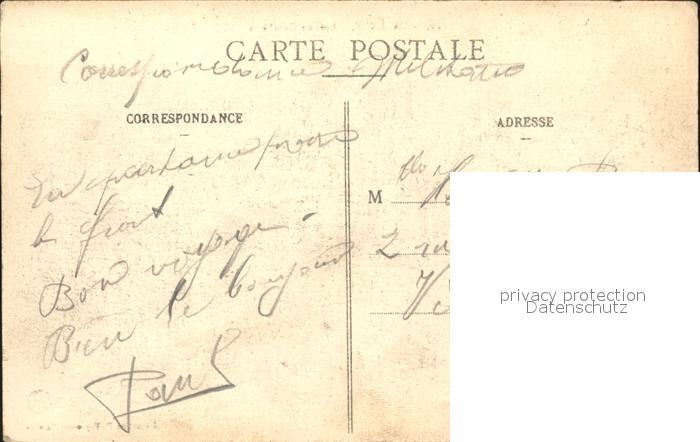 CARTE POSTALE
Correspondance Militaire
CORRESPONDANCE
ADRESSE
En partance pour
le front
Bon voyage -
Bien le bonjour
Paul
M
2
privacy protection
Datenschutz